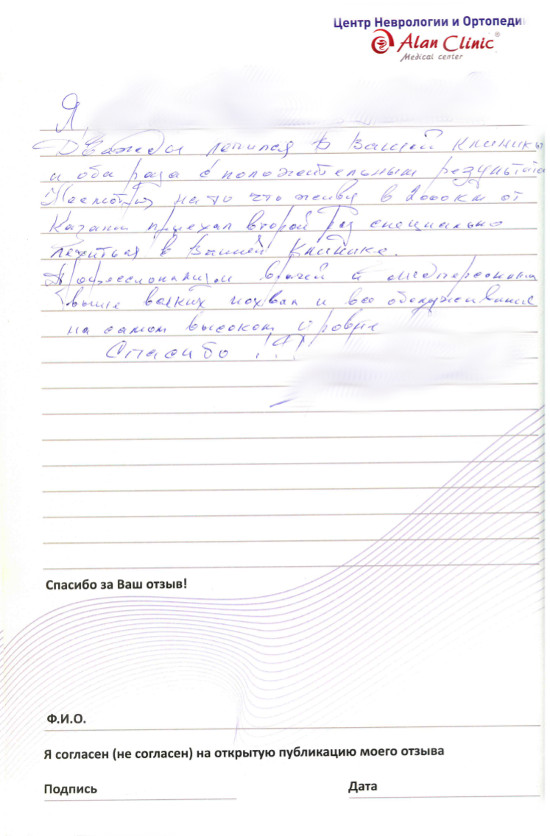 Центр Неврологии и Ортопеди
Alan Clinic®
Medical center
Я,
Дважды лечился в Вашей клинике
и оба раза с положительным результато
Несмотря на то что живу в 2000 км от
Казани приехал второй раз специально
лечиться в Вашей Клинике.
Профессионализм врачей и медперсонала
выше всяких похвал и все обслуживание
на самом высоком уровне
Спасибо!!!
Спасибо за Ваш отзыв!
Ф.И.О.
Я согласен (не согласен) на открытую публикацию моего отзыва
Подпись
Дата